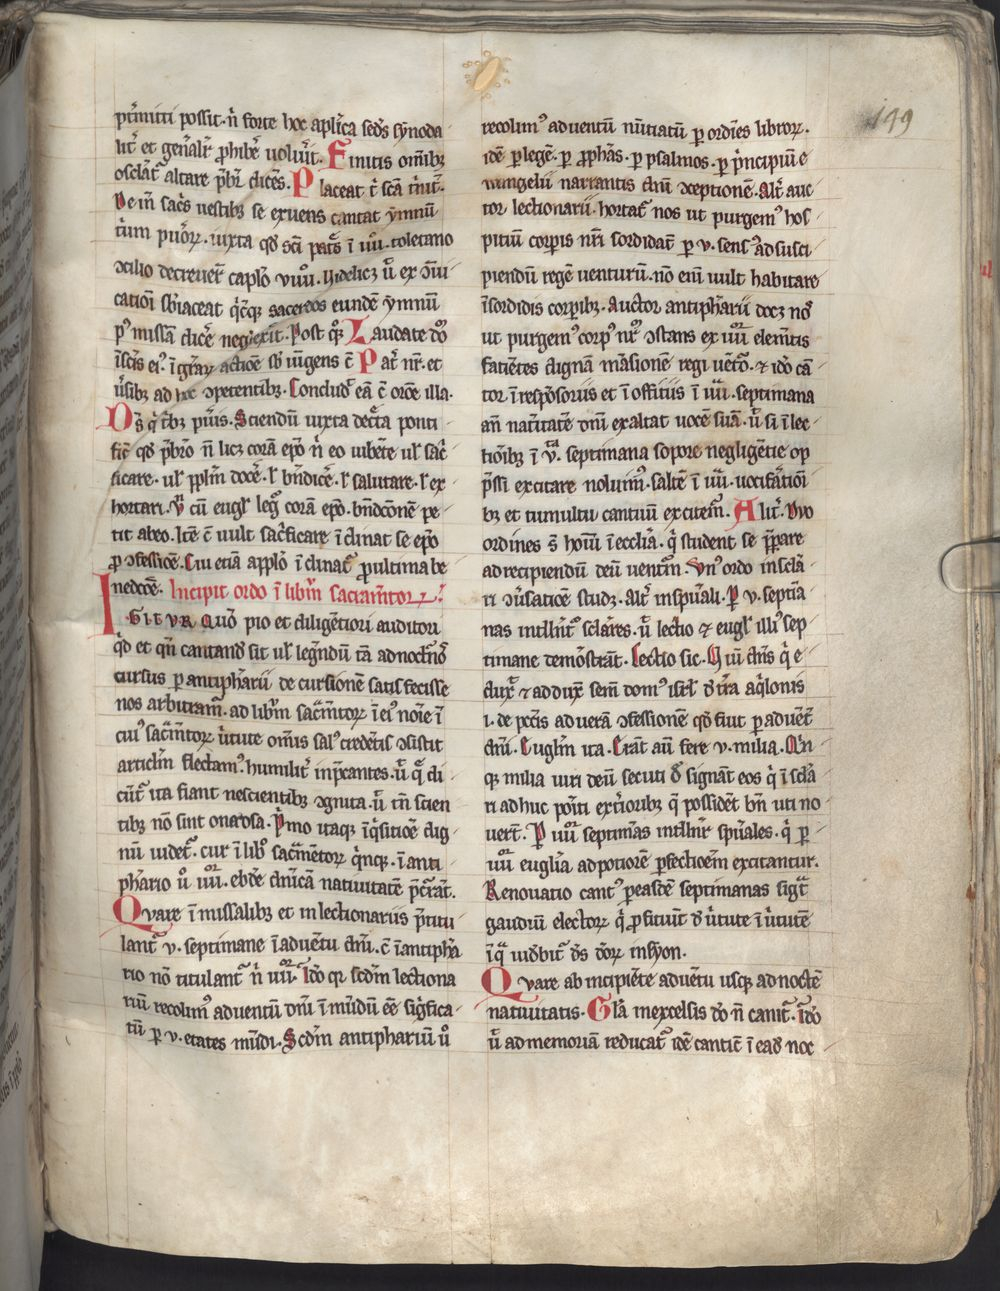 149
ptͬmitti possit · n̄ forte hoc apl̓ica sedˢ sẏnoda
lit̓ et gen̓alit̓ ꝓhibe᷒ uoluit̓. Finitis om̄ibꝫ
osclat᷒ altare p̄bit̓ dicēs. Placeat t̓ sc̄a t̓nit᷒.
De in sac̓s uestibꝫ se exuens cantat ẏmnū
t̓um pu̓oꝝ · iuxta qđ sc̄i pat᷒s ī iiii · toletano
ꝯcilio decreuer̄t
cation̄ sb̓iaceat q̓cūqꝫ sacerdos eundē ẏmnū
pꝰ missā dice᷒ neglexit. Post q̓ꝫ Laudate dō
īscīs eiꝰ · ī gr̄aꝝ actiōe ī uigens ē Pat̓ nr̄ · et
u̓sibꝫ ad hoc ꝯpetentibꝫ · Conclud᷒ eā c̄ orōe illa.
Ds̄ q̓ tͥbꝫ pu̓is. Sciendū iuxta dec̓ta ponti
fic̄ qđ p̄bro n̄ licꝫ corā ep̄o n̄ eo iubēte ul̓ sac̓
ficare · ul̓ ppl̄m doce᷒ · l̓ bn̄dice᷒ · l̓ salutare · l̓ ex
hortari. cū eugl̓ leg᷒ corā ep̄o · bn̄dcōnē pe
tit ab eo. Itē c̄ uult sac̓ficare īclinat se ep̄o
ꝓ ꝯfessiōe. Cui etiā ap̄plo īclinat᷒ ꝓ ultima be
nedcōe. Incipit ordo ī libr̄m sacram̄toꝝ.
IGITVR Quō pio et diligētiori auditori
qđ et qn̄ cantand̓ sit ul̓ legn̄dū tā ad noct̓nos
cursus ꝑ antiph̄arii de cursionē satis fecisse
nos arbitram᷒ · ad libr̄m sac̓m̄toꝝ ī eiꝰ noīe ī
cuiꝰ sac̓m̄toꝝ u̓tute om̄is salꝰ credētiū ꝯsistit
articl̄m flectamꝰ · humilit̓ inp̄cantes · ut̓ q̄ di
cūt᷒ ita fiant nescientibꝫ ꝯgnita · ut̓ tn̄ scien
tibꝫ nō sint onerosa. P̓mo itaqꝫ īq̓sitiōe dig
nū uidet᷒ · cur ī lib̓o sac̓m̄entoꝝ q̓nqꝫ · ī anti
ph̄ario u̓ iiiior · ebdē dn̄icā natiuitatē p̄cedāt.
Qvare ī missalibꝫ et in lectionariis p̄titu
lant᷒ v · septimane ī aduētu dn̄i · c̄ ī antiph̄a
rio nō titulant᷒ n̓ iiiior. Idō qꝛ scdm̄ lectiona
riū recolimꝰ aduentū dn̄i ī mūdū ēē sigͥfica
tū ꝑ v · etates mūdi. Scdm̄ antipharium u̓
recolimꝰ aduentū nūtiatū ꝑ ordīes libroꝝ.
idē ꝑ legē · ꝑ ꝓphās · ꝑ psalmos · ꝑ p̓ncipiū e
wangelii narrantis dn̄i ꝯceptionē. Alit̓ auc
tor lectionarii · hortat᷒ nos ut purgemꝰ hos
pitiū corꝑis nr̄i sordidat᷒ ꝑ v · sensꝰ ad susci
piendū regē venturū · nō enī uult habitare
ī sordidis corꝑibꝫ · Auctor antiph̄arii docꝫ nos
ut purgemꝰ corpꝰ nr̄m ꝯstans ex iiiior elem̄tis
faciētes dignā mā̄sionē regi uēto · ⁊ idō cā
tor ī respōsoriis et ī offitiis ī iiii · septimana
an̄ natͥitatē dn̄i exaltat uocē suā · ut̓ si ī lec
tiōibꝫ ī v̄ · septimana sopore negligētie op
p̄ssi excitare nolumꝰ · saltē ī iiii · uocif᷒ationi
bꝫ et tumultu cantuū excitem᷒. Alit̓. Duo
ordines s̄ hoīm ī ecclia · q̓ student se p̄pare
ad recipiendū deū ventu᷒m. Vnꝰ ordo in scl̄a
ri ꝯu̓satiōe studꝫ · alt̓ in spu̓ali. P v · septīa
nas intllīt᷒ scl̄ares. ut̓ lectio ⁊ eugl̓ illiꝰ sep
timane demōstrāt. Lectio sic. Q iuī dn̄s q̓ e
dux᷒ ⁊ adduxͭ sem̄ domꝰ isrl̓ d̓ t̓ra aq̓lonis
i · de pctīs ad uerā ꝯfessionē qđ fiut ꝑ aduēt᷒
dn̄i. Euglm̄ ita. Erāt au̓ fere v · milia. Qn̄
qꝫ milia uiri deū secuti d̓ signāt eos q̓ ī scl̄a
ri adhuc poīti ext̓ioribꝫ q̄ possidēt bn̄ uti no
uer̄t. P iiiior septimas intllīt᷒ spūales · q̓ ꝑ
iiiior euglīa ad potiorē ꝑfectioēm excitantur.
Renouatio cantꝰ ꝑ easdē septimanas sig᷒t
gaudiū electoꝝ q̓ ꝓficiunt d̓ u̓tute ī u̓tutē
ī q̄ uidebit᷒ ds̄ dōꝝ in syon.
Qvare ab incipiēte aduētu usqꝫ ad noctē
natiuitatis. Glā in excelsis dō n̄ canit᷒. Idō
ut̓ ad memoriā reducat᷒ idē cantic̄ ī ead̓ noc